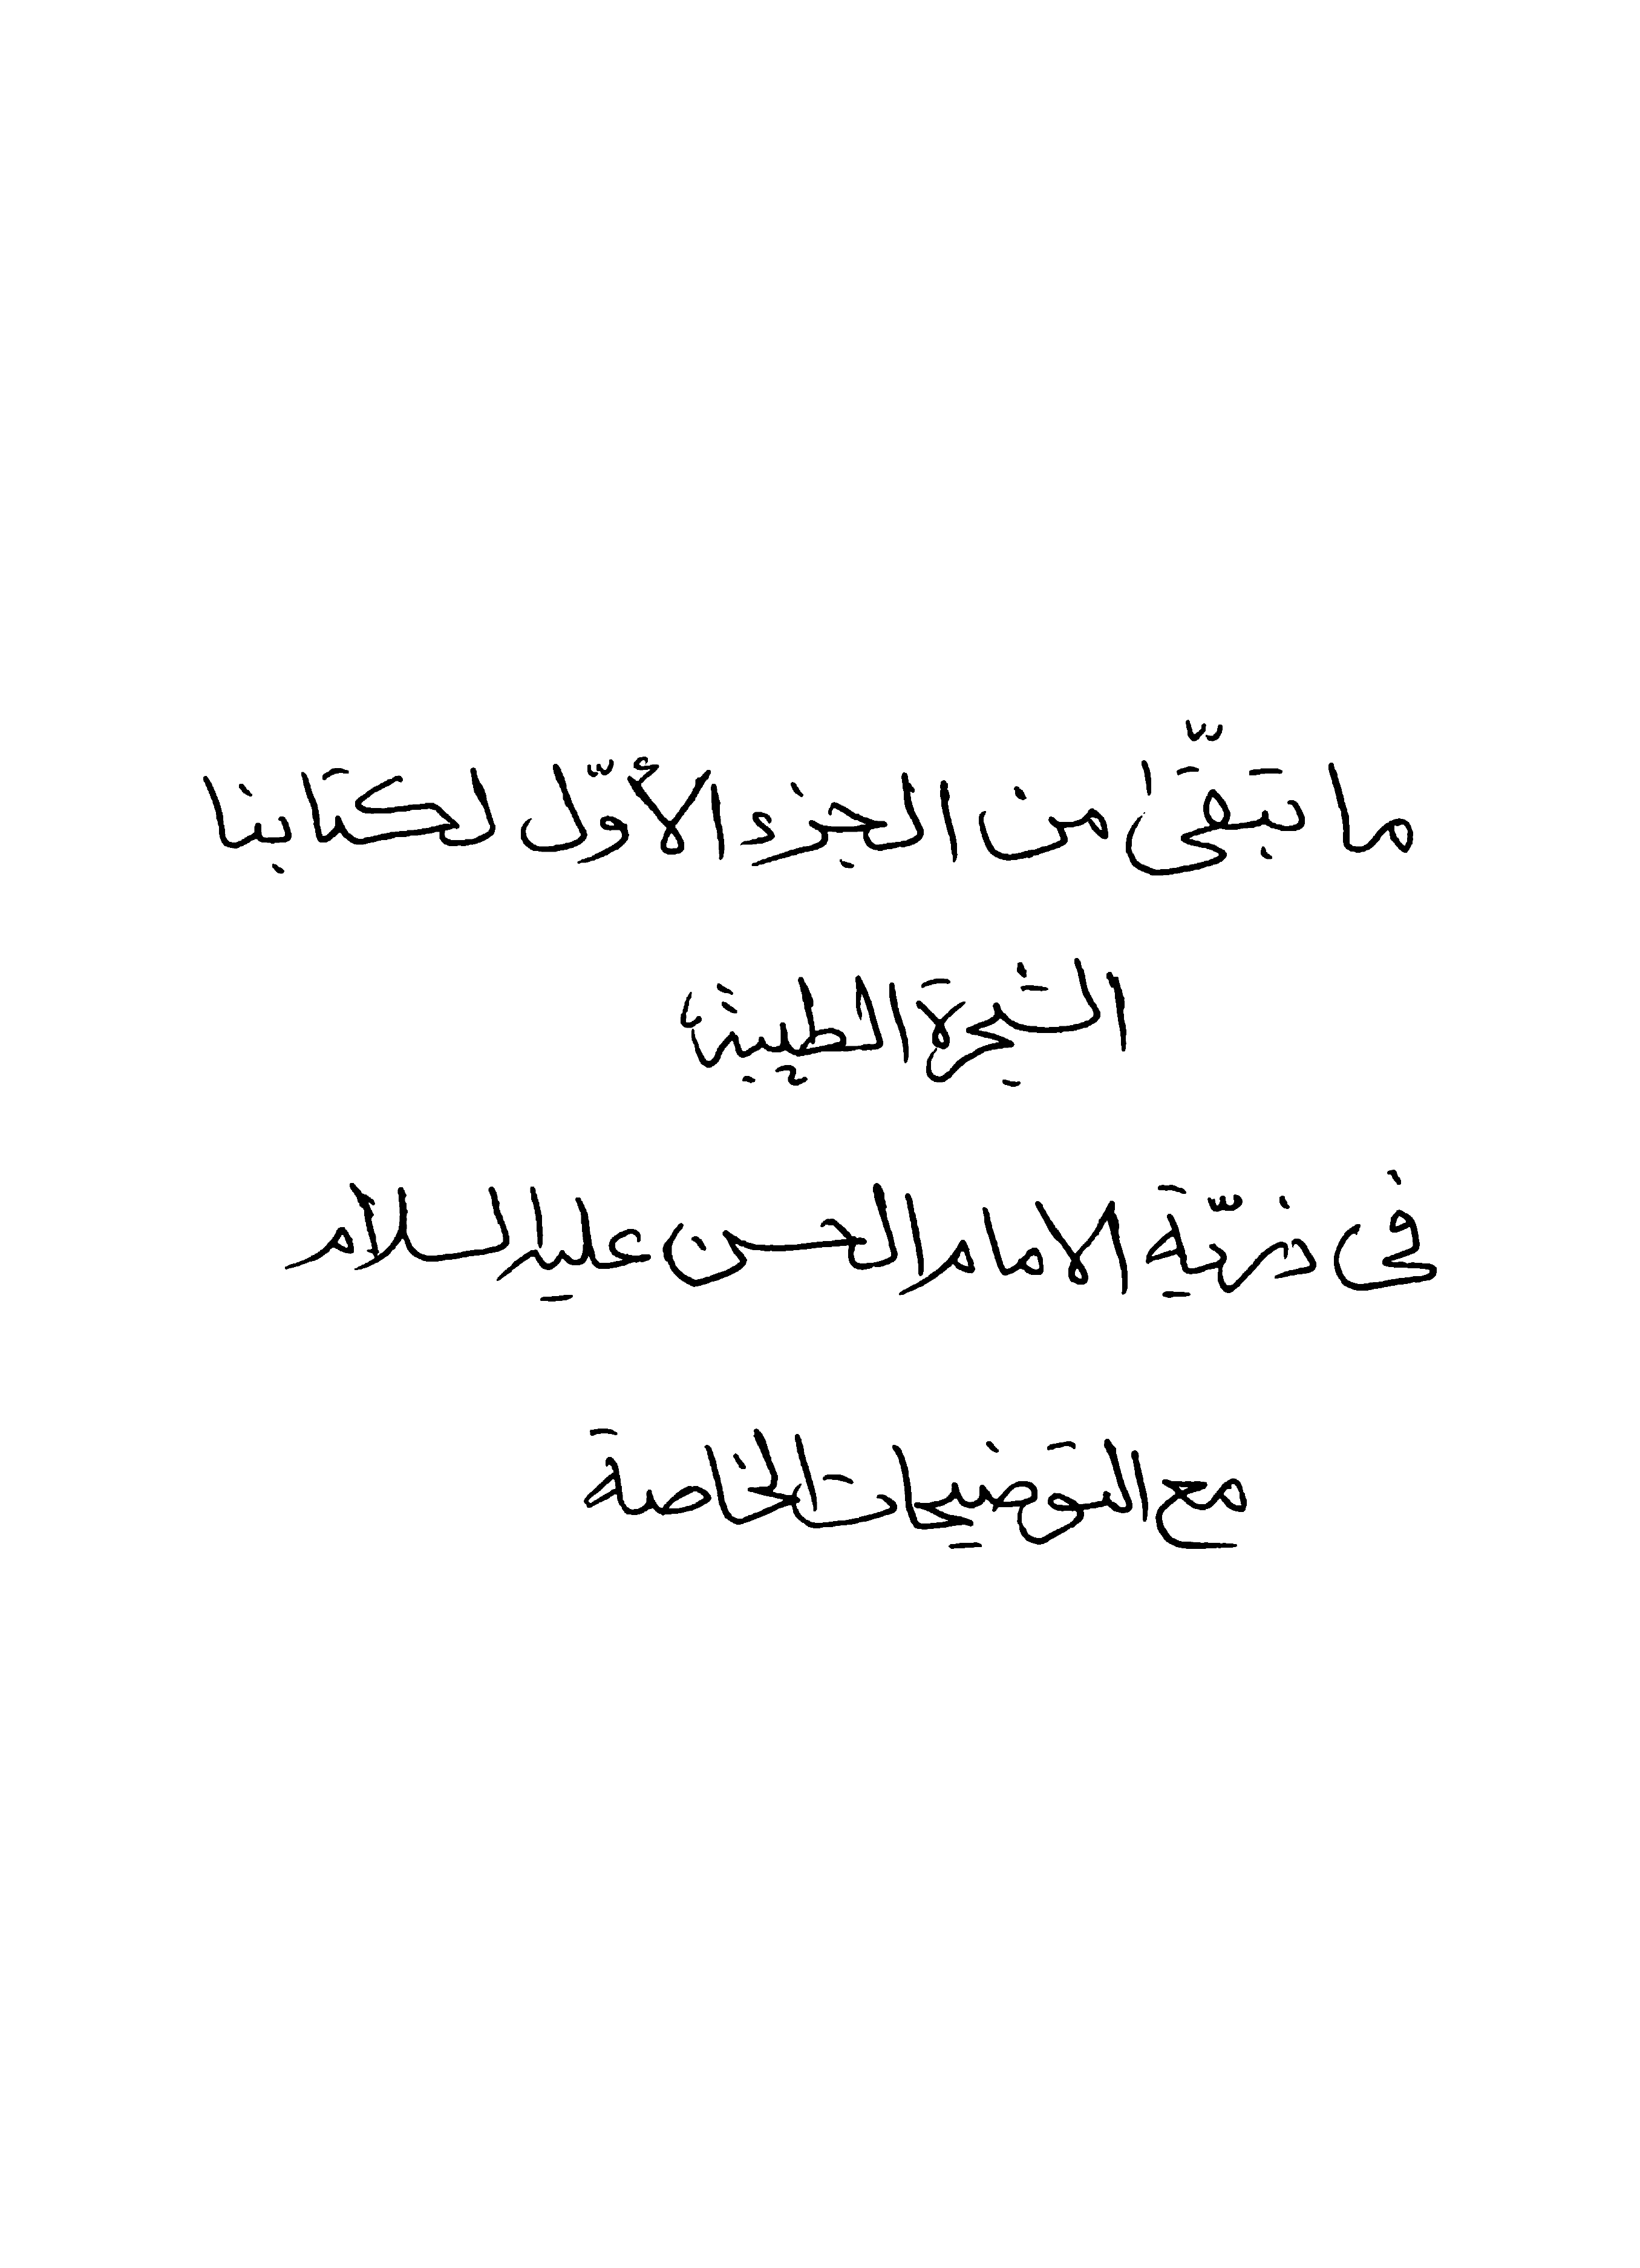 ما تبقّىٰ من الجزء الأوّل لكتابنا
الشجرة الطيبة
فى ذرّيّة الامام الحسن عليه السلام
مع التوضيحات الخاصة